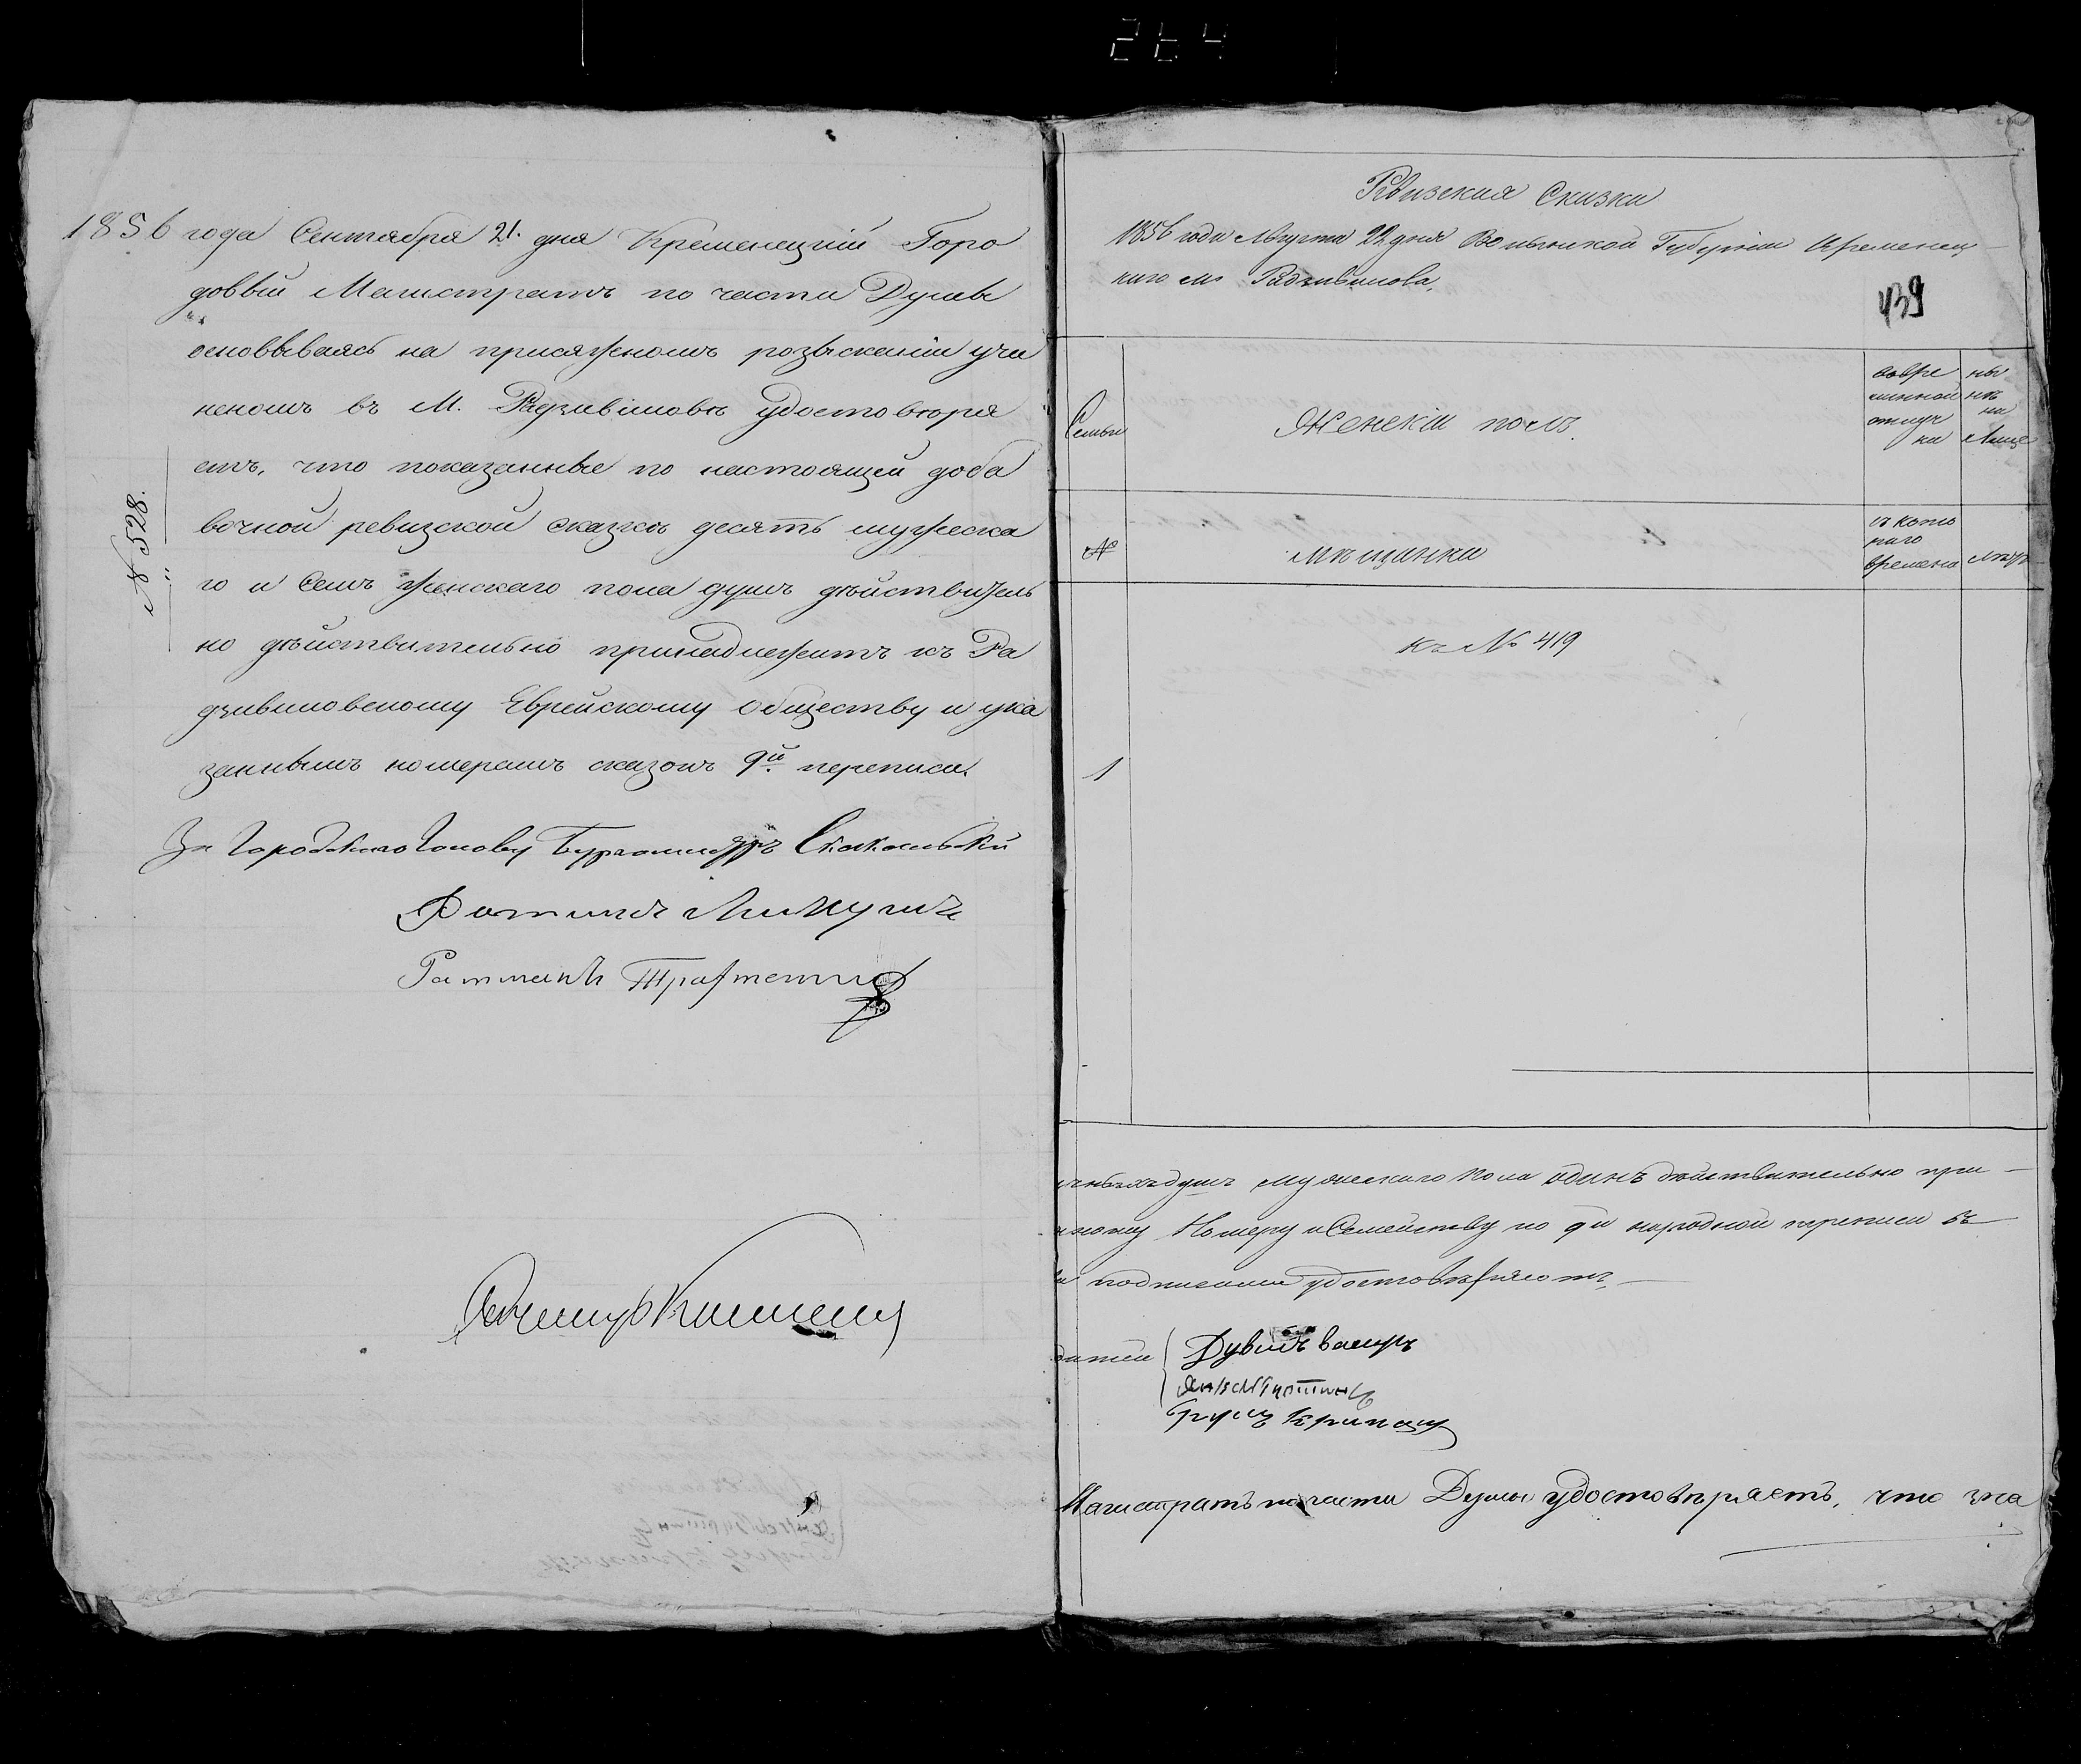 264
1856 года Сентября 21. дня Кременецкій Горо
довый Магистратъ по части Думы
основываясь на присяжномъ розысканіи учи
неномъ въ М. Радзивиловѣ удостовѣря
етъ, что показанные по настоящей доба
вочной ревизской сказкѣ десять мужеска
го и Семь женскаго пола душъ дѣйствитель
но дѣйствительно принадлежитъ къ Ра
дзивиловскому Еврейскому обществу и ука
заннымъ номерамъ сказокъ 9й переписи.
№ 528.
За Городскаго Голову Бургомистръ
Ратманъ
Ратманъ
Ревизская Сказка
1856 года Августа 22 дня Волынской Губерніи Кременец
каго м. Радзивилова.
439
Семьи
Женскій полъ.
вовре
менной
отлуч
ки
ны
нѣ
на
Лице
№
мѣщанки
съ кото
раго
времени
Лѣта
къ № 419
1
душъ мужескаго пола одинъ дѣйствительно при
Номеру и Семейству по 9й народной переписи въ
подписомъ удостовѣряютъ
Магистратъ по части Думы удостовѣряетъ, что зна